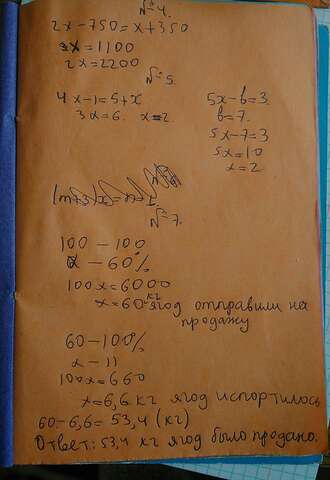 №4.
2x-750=x+350
x=1100
2x=2200
№5.
4x-1=5+x
3x=6. x=2.
5x-b=3.
b=7.
5x-7=3
5x=10
x=2
№7.
100-100
x-60%
100x=6000
x=60кг ягод отправили на
продажу
60-100%
x-11
100x=660
x=6,6 кг ягод испортилось
60-6,6=53,4(кг)
Ответ: 53,4 кг ягод было продано.